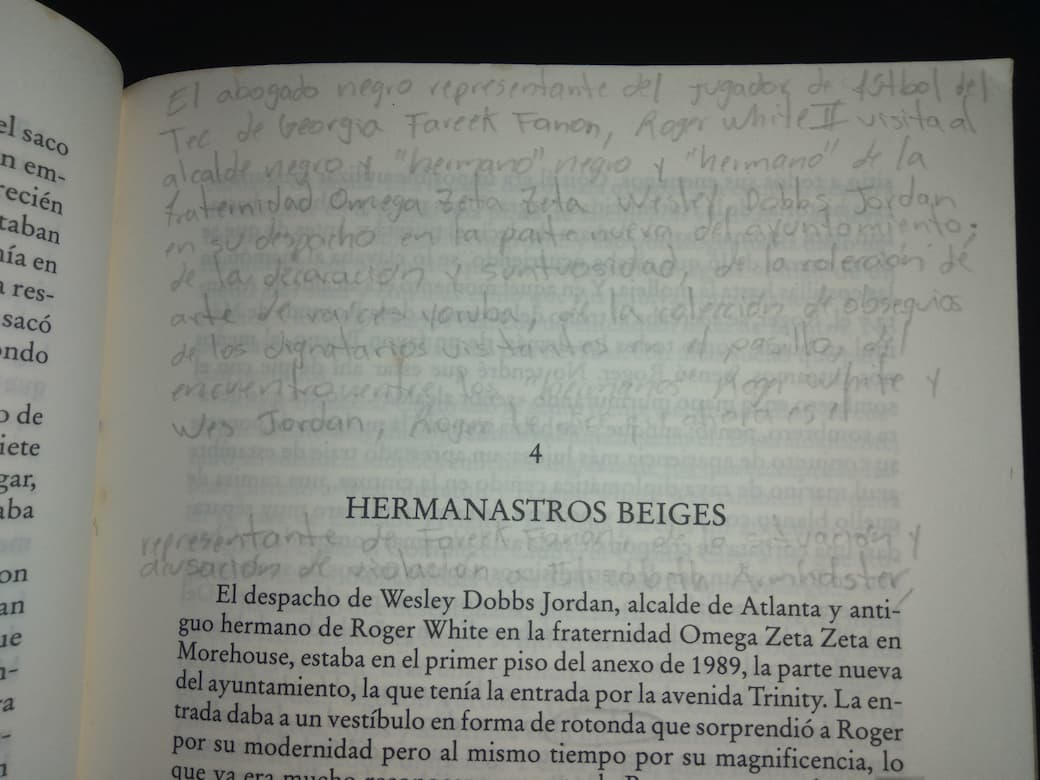 el saco
n em-
recién
taban
nía en
a res-
sacó
ondo
o de
iete
gar,
aba
on
an
ue
n-
ra
El abogado negro representante del jugador de fútbol del
Tec de Georgia Fareek Fanon, Roger White II visita al
alcalde negro y "hermano" negro y "hermano" de la
fraternidad Omega Zeta Zeta Wesley Dobbs Jordan
en su despacho en la parte nueva del ayuntamiento;
de la decoración y suntuosidad, de la colección de
arte de raíces yoruba, de la colección de obsequios
de los dignatarios visitantes en el pasillo, del
encuentro entre los "hermanos" Roger White y
Wes Jordan, Roger le dice
4
HERMANASTROS BEIGES
representante de Fareek Fanon, de la situación y
acusación de violación a Armholster,
El despacho de Wesley Dobbs Jordan, alcalde de Atlanta y anti-
guo hermano de Roger White en la fraternidad Omega Zeta Zeta en
Morehouse, estaba en el primer piso del anexo de 1989, la parte nueva
del ayuntamiento, la que tenía la entrada por la avenida Trinity. La en-
trada daba a un vestíbulo en forma de rotonda que sorprendió a Roger
por su modernidad pero al mismo tiempo por su magnificencia, lo
que ya era mucho